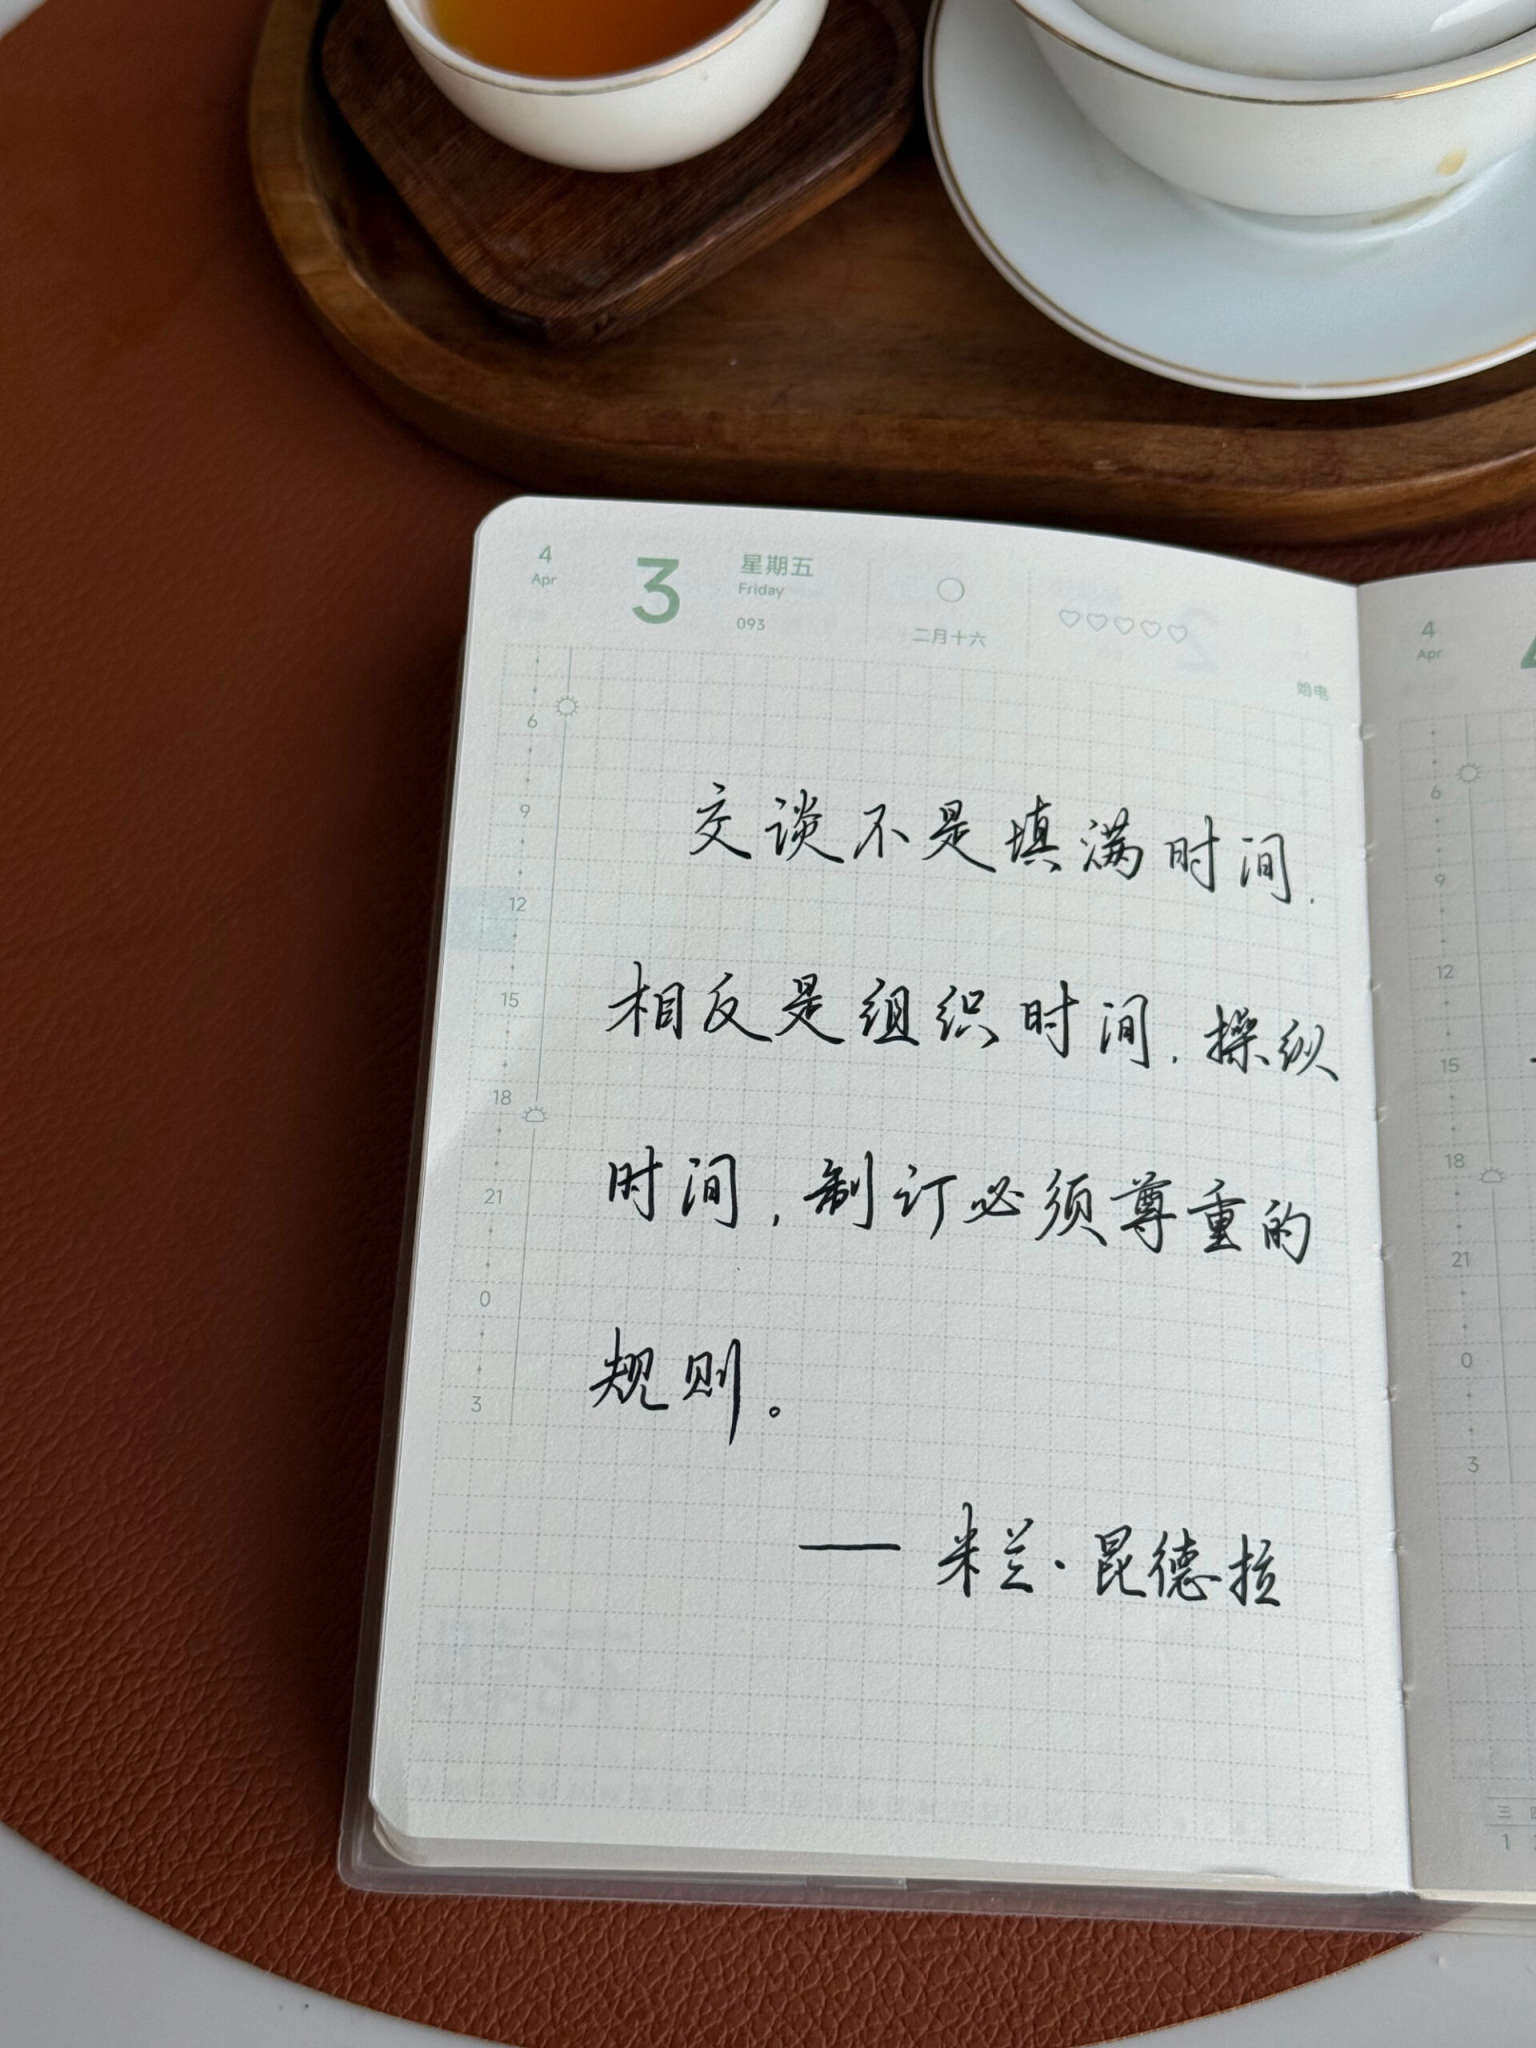 4
Apr
3
星期五
Friday
093
二月十六
始电
6
9
12
15
18
21
0
3
交谈不是填满时间,
相反是组织时间,操纵
时间,制订必须尊重的
规则。
—— 米兰·昆德拉
4
Apr
6
9
12
15
18
21
0
3
三
1